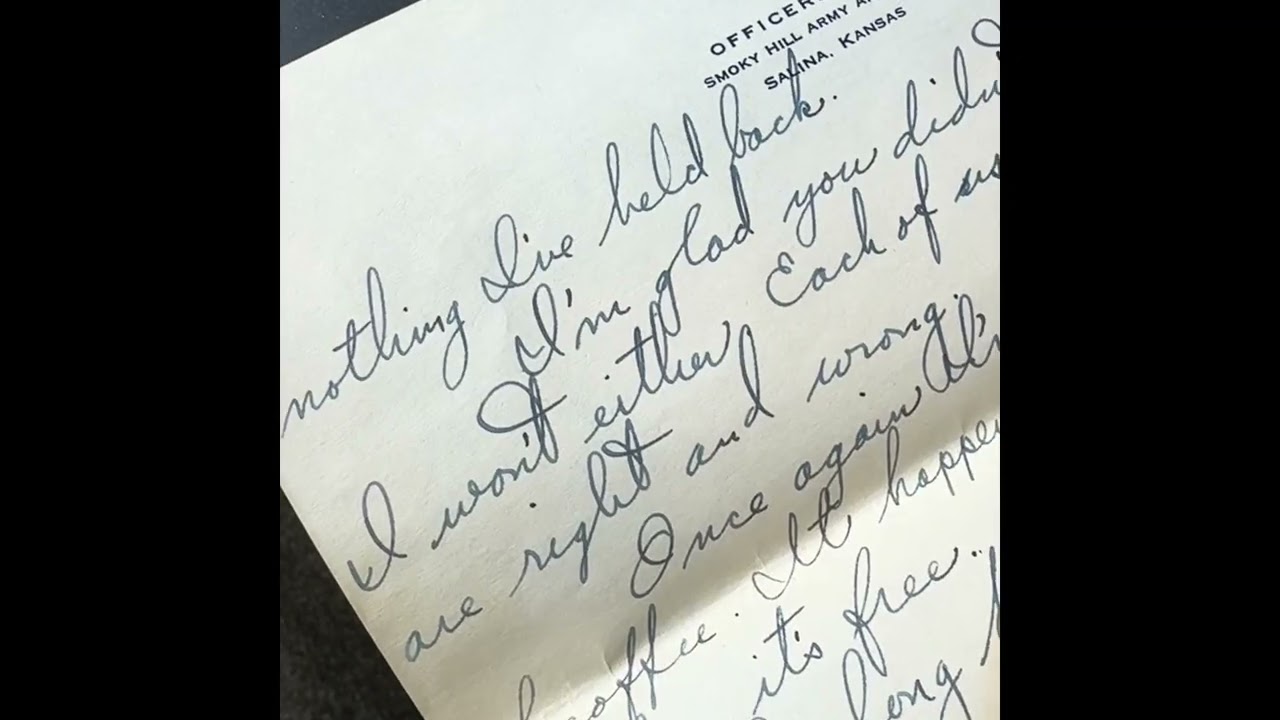 OFFICER
SMOKY HILL ARMY A
SALINA, KANSAS
nothing I've held back.
I'm glad you didn
I won't either Each of us
are right and wrong.
Once again I'm
office. It happen
it's free.
long